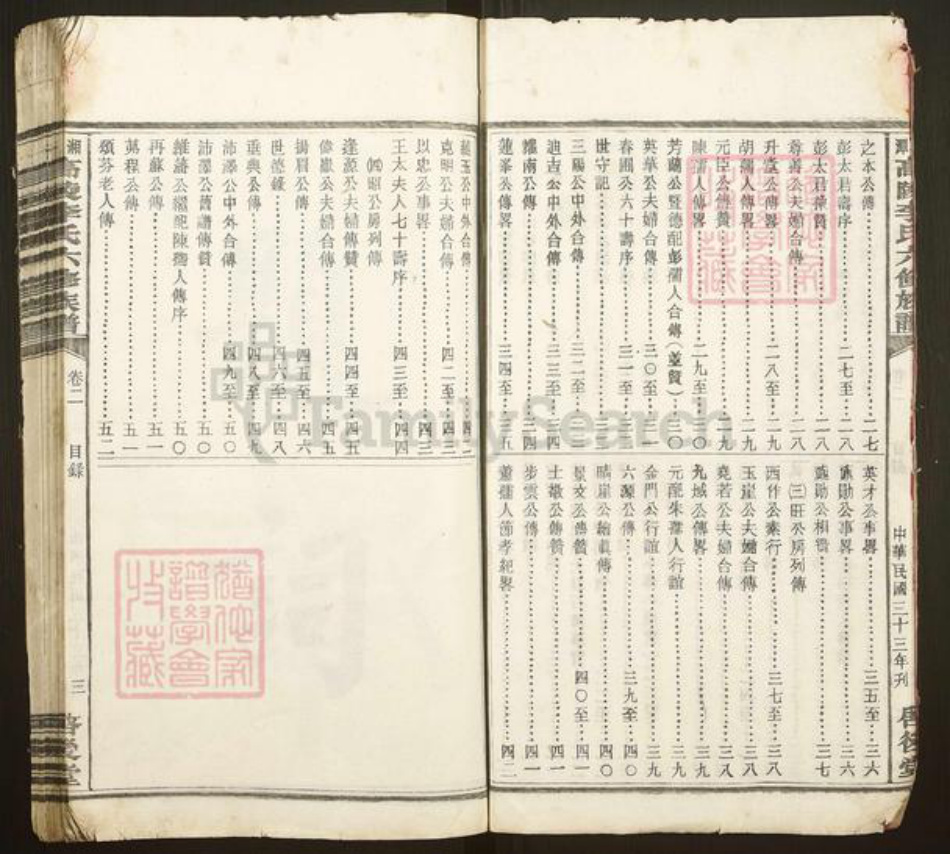 中華民國三十三年刊
之本公傳 二七
彭太君壽序 二七至二八
彭太君神贊 二八
尊善公夫婦合傳 二八
升堂公傳畧 二八至二九
胡孺人傳畧 二九
元臣公傳贊 二九
陳孺人傳畧 二九至三〇
芳蘭公暨德配彭孺人合傳（並贊） 三〇
英華公夫婦合傳 三〇至三一
春圃公六十壽序 三一至三三
世守記
三陽公中外合傳 三二至三三
迪吉公中外合傳 三三至三四
耀南公傳 三四
蓮峯公傳畧 三四至三五
英才公事畧 三五至三六
公事畧 三六
公相贊 三七
㈢旺公房列傳
西作公素行 三七至三八
玉崖公夫婦合傳 三八
堯若公夫婦合傳 三八
九域公傳畧 三九
元配朱孺人行誼 三九
金門公行誼 三九
六源公傳 三九至四〇
晴崖公繪眞傳 四〇
景文公傳贊 四〇至四一
土墩公傳贊 四一
步雲公傳 四一
蕭孺人節孝紀畧 四二
公中外合傳
克明公夫婦合傳 四二至四三
以忠公事畧 四三
王太夫人七十壽序 四三至四四
㈣昭公房列傳
逢源公夫婦傳贊 四四至四五
偉嶽公夫婦合傳 四五
揚眉公傳 四五至四六
世德錄 四六至四八
垂典公傳 四八至四九
沛澤公中外合傳 四九至五〇
沛澤公舊譜傳 五〇
維藩公繼配陳孺人傳序 五〇
再蘇公傳 五一
萬程公傳 五一
頌芬老人傳 五二
湘高陵李氏六修族譜
卷二
目錄
三
啓後堂
FamilySearch